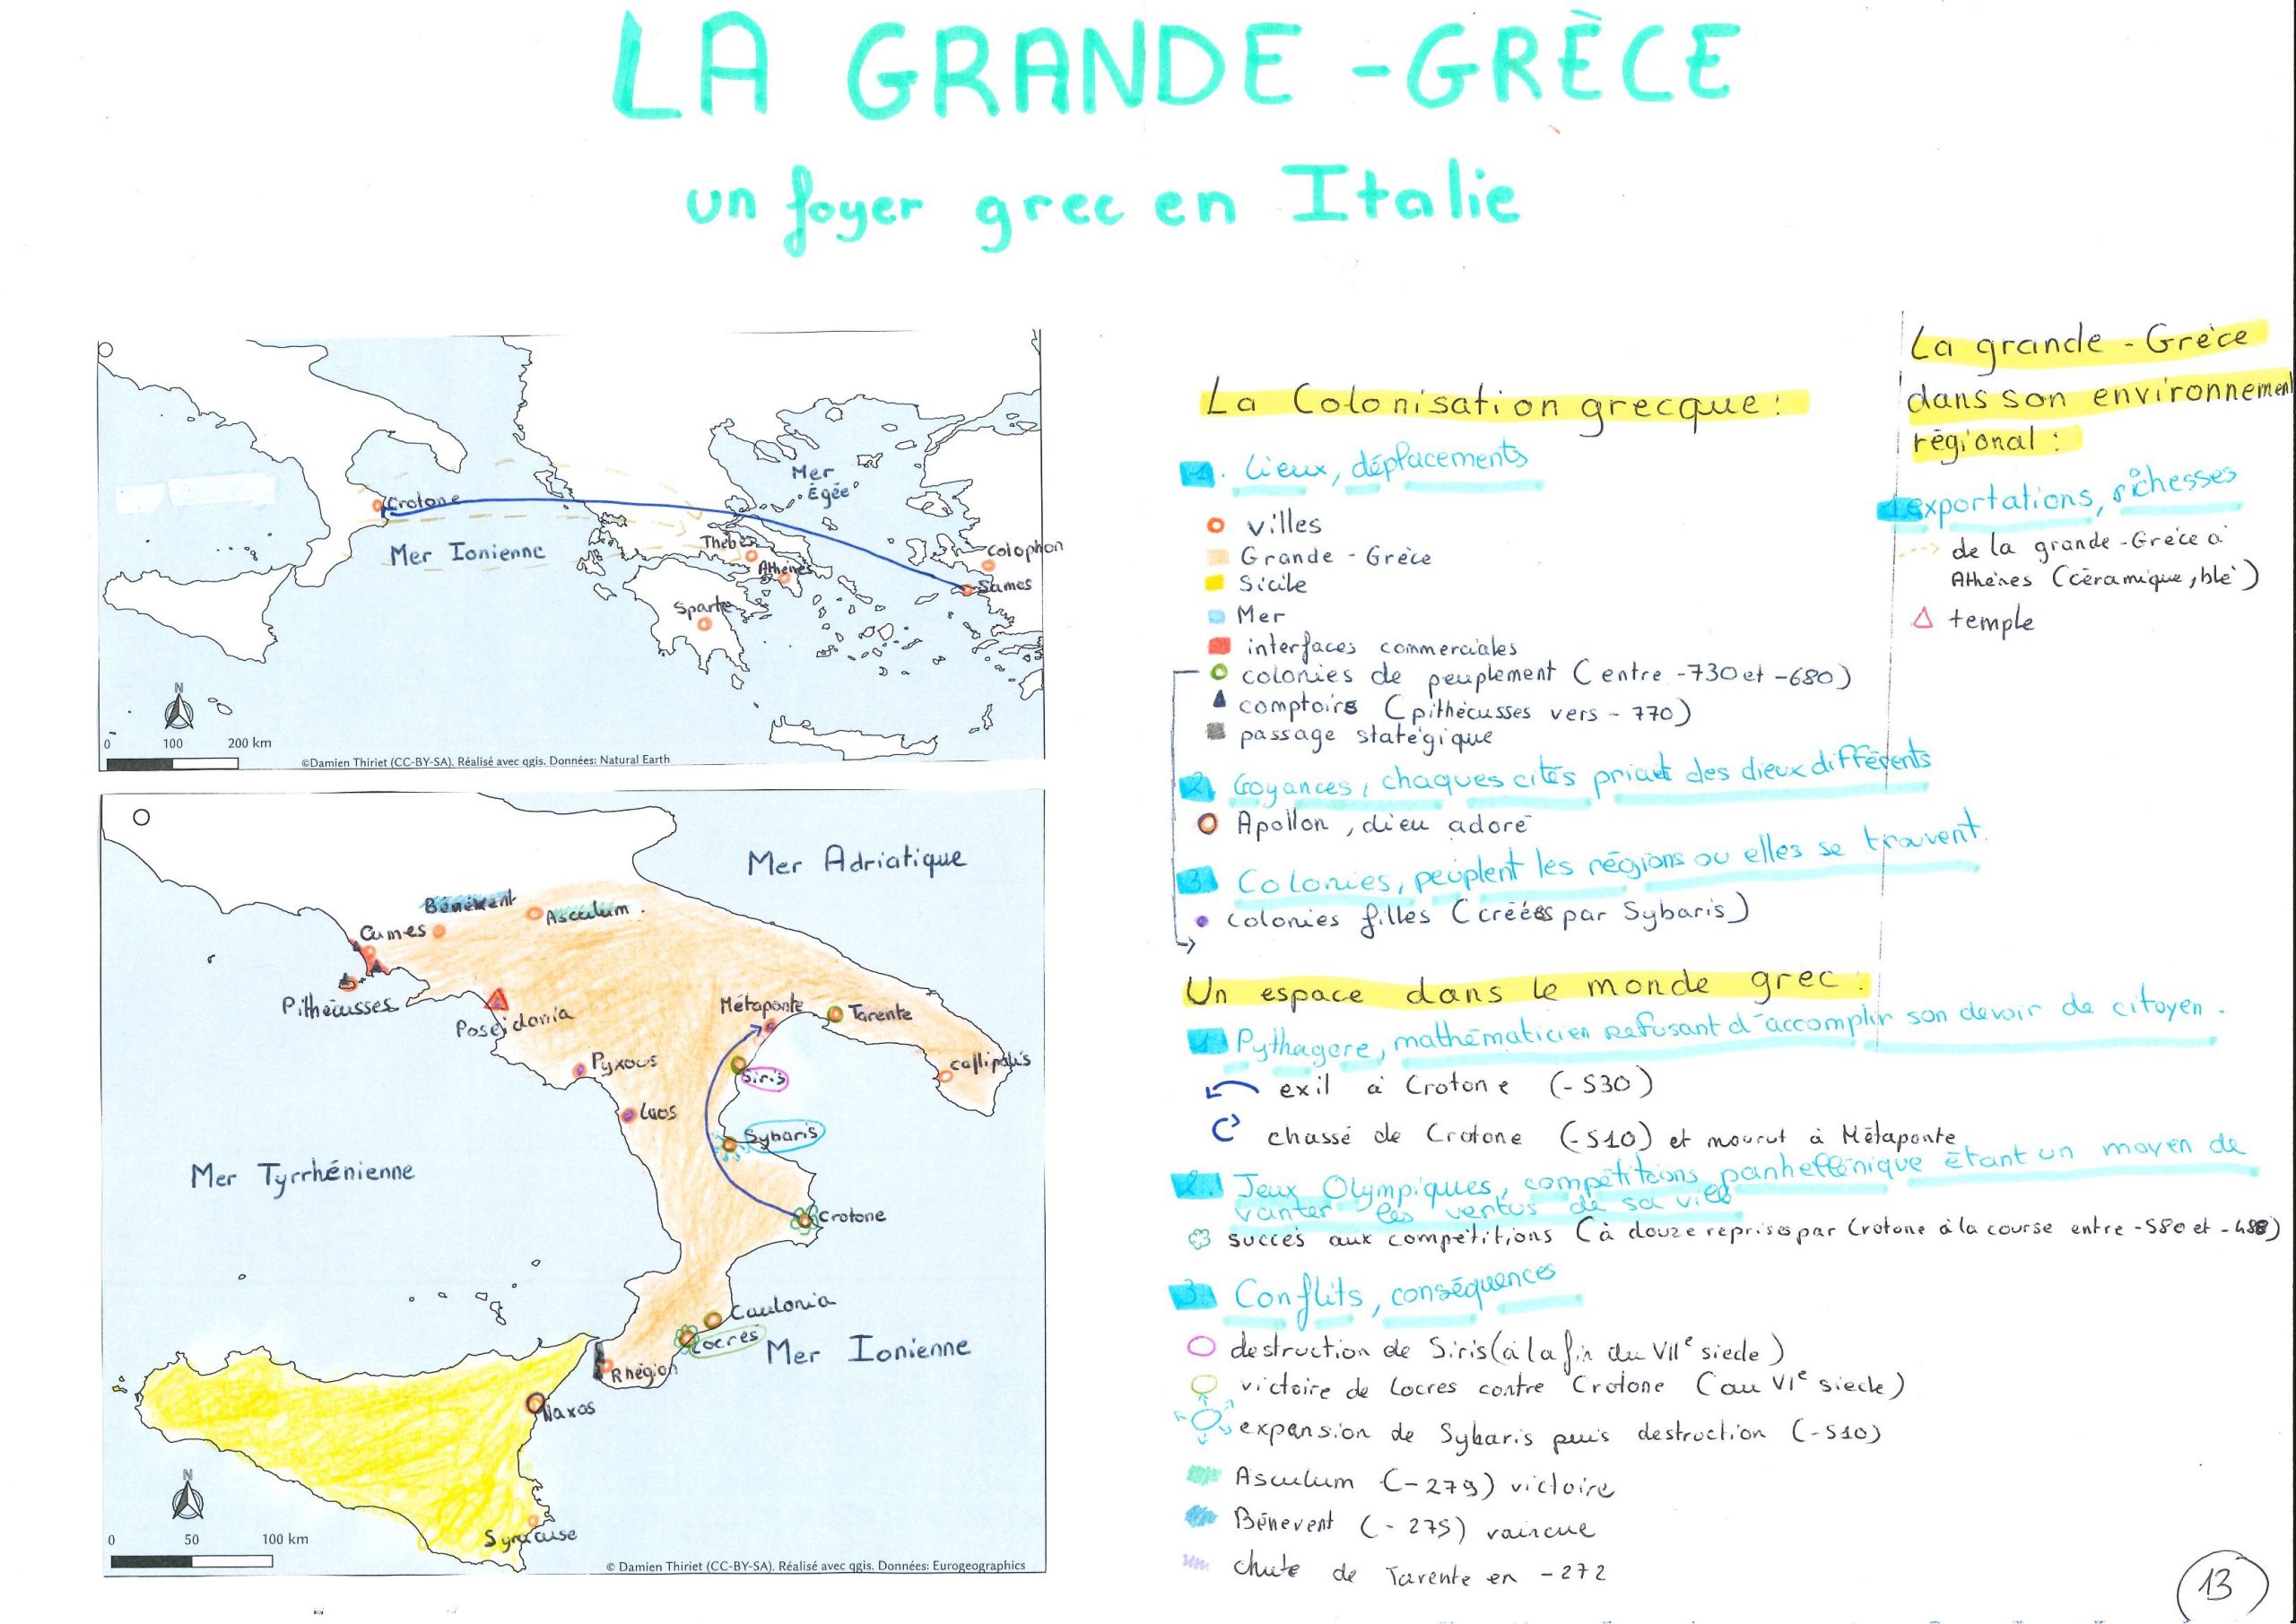 LA GRANDE-GRÈCE
un foyer grec en Italie
Crotone
Mer Ionienne
Mer
Égée
Thèbes
Athènes
Sparte
Colophon
Samos
N
0 100 200 km
©Damien Thiriet (CC-BY-SA). Réalisé avec qgis. Données: Natural Earth
Mer Adriatique
Bénévent
Asculum
Cumes
Pithécusses
Poseidonia
Métaponte
Tarente
Pyxous
Siris
Callipolis
Laos
Sybaris
Mer Tyrrhénienne
Crotone
Caulonia
Locres
Mer Ionienne
Rhégion
Naxos
Syracuse
N
0 50 100 km
© Damien Thiriet (CC-BY-SA). Réalisé avec qgis. Données: Eurogeographics
La Colonisation grecque :
1. Lieux, déplacements
villes
Grande-Grèce
Sicile
Mer
interfaces commerciales
colonies de peuplement (entre -730 et -680)
comptoirs (pithécusses vers -770)
passage statégique
2. Croyances, chaques cités priant des dieux différents
Apollon, dieu adoré
3. Colonies, peuplent les régions ou elles se trouvent.
colonies filles (créées par Sybaris)
Un espace dans le monde grec :
1. Pythagore, mathématicien refusant d'accomplir son devoir de citoyen.
exil à Crotone (-530)
chassé de Crotone (-510) et mourut à Métaponte
2. Jeux Olympiques, compétitions panhellénique étant un moyen de
vanter les vertus de sa ville
succès aux compétitions (à douze reprises par Crotone à la course entre -580 et -488)
3. Conflits, conséquences
destruction de Siris (à la fin du VIIe siecle)
victoire de Locres contre Crotone (au VIe siecle)
expansion de Sybaris puis destruction (-510)
Asculum (-279) victoire
Bénevent (-275) vaincue
chute de Tarente en -272
La grande-Grèce
dans son environnement
régional :
1 exportations, richesses
de la grande-Grèce à
Athènes (céramique, blé)
temple
13